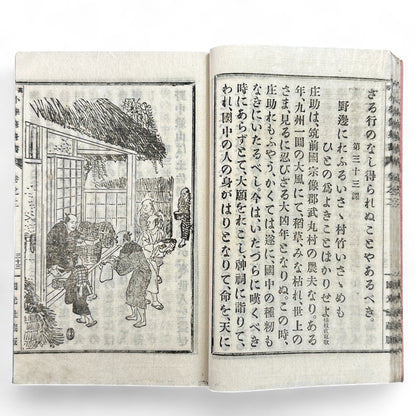 ざる行のなし得られぬことやあるべき。
第三十三課
野邊にたふるいさゝ村竹いさゝめも
ひとの爲よきことはかりせよ
庄助は、筑前國宗像郡武丸村の農夫なり。ある
年、九州一圓の大風にて、稻草、みな枯れ、世上の
さま、見るに忍びざる大凶年となりぬ。この時、
庄助おもふやう、かくては、遂に、國中の種籾も
なきにいたるべし、今は、いたづらに嘆くべき
時にあらずとて、大願をおこし、神祠に詣りて、
われ、國中の人の身がはりとなりて、命を、天に